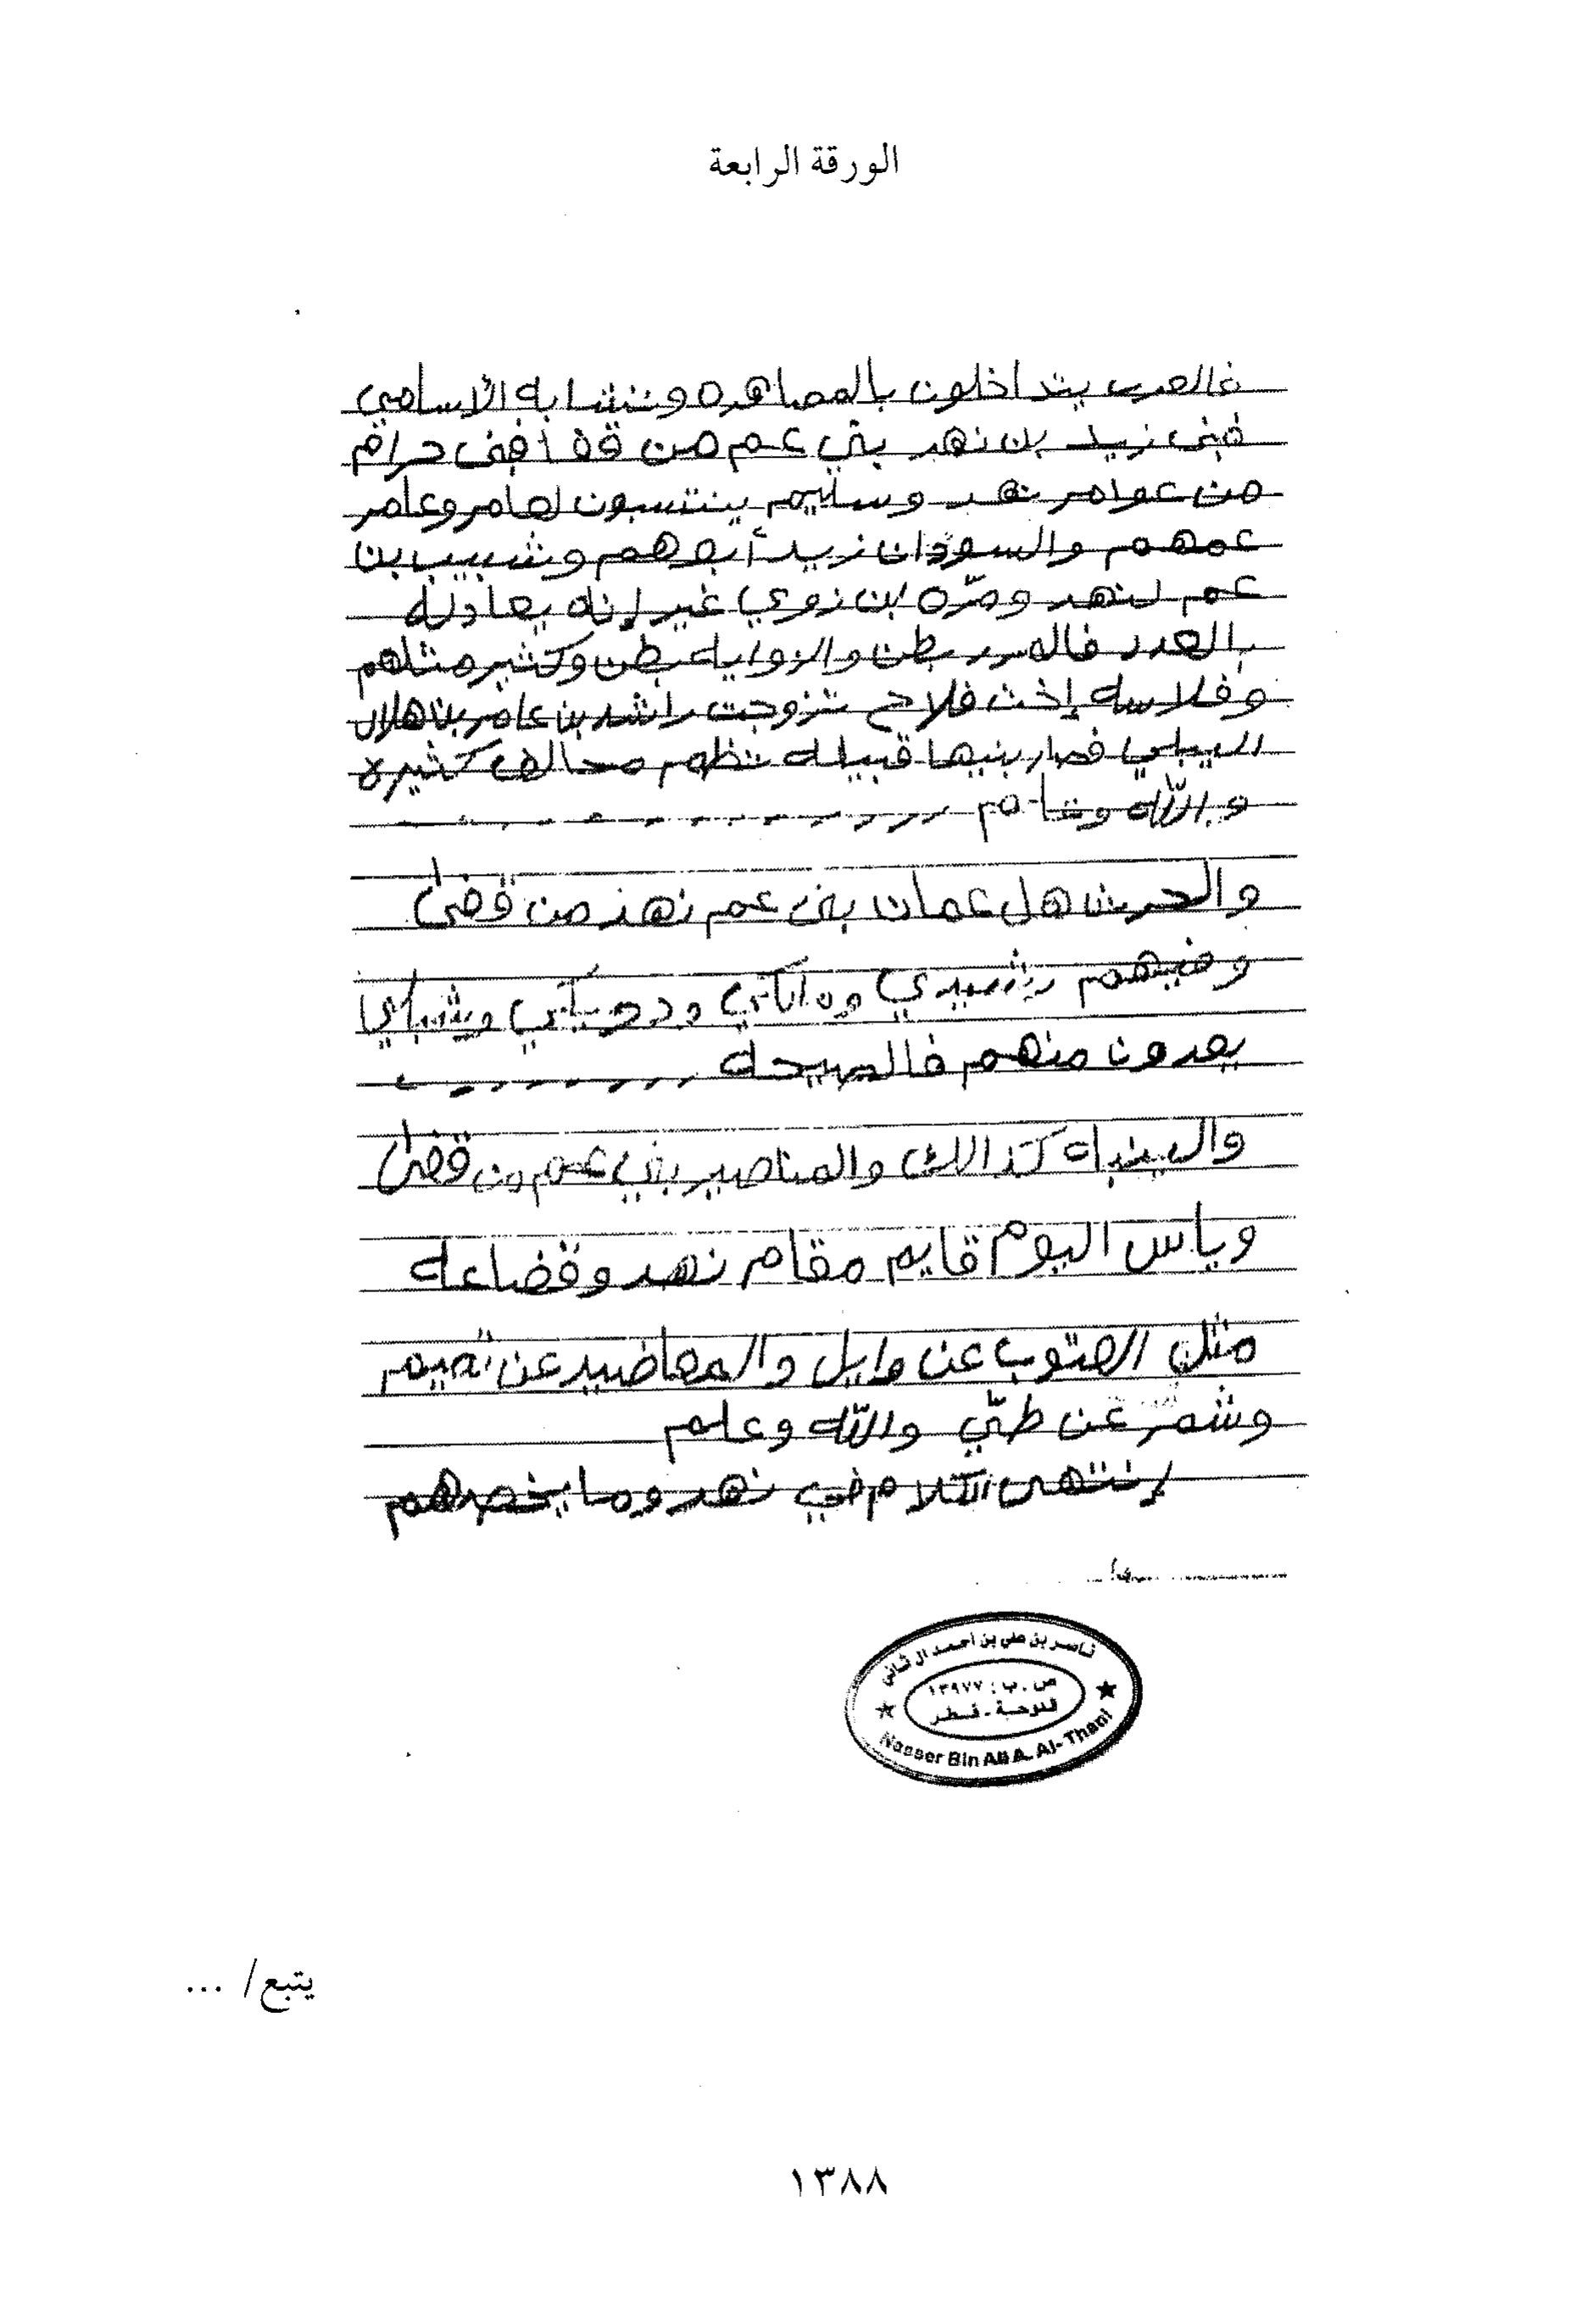 الورقة الرابعة
فالعرب يتداخلون بالمصاهره وتتشابه الأسامي
فبنى زيد بن نهد بني عم من حرام
من عوامر نهد وسليم ينتسبون لعامر وعامر
عمهم والسودان زيد أبوهم وشبيب بن
عم لنهد ومرّه ابن زوي غير إنه يعادله
بالعدد بطن والروايه بطن وكثير مثلهم
وفلاسه إخت فلاح تزوجت راشد بن عامر بن هلال
فصار بنيها قبيله تظم محالف كثيره
والله
والحرث هل عمان بنى عم نهد من
وفيهم رشيدي
يعدون منهم فالصيحه
كذالك والمناصير بني عم من
وياس اليوم قايم مقام نهد وقضاعه
مثل العتوب عن وايل والمعاضيد عن تميم
وشمر عن طيّ والله وعلم
إنتهى الكلام في نهد وما يخصهم
ناصر بن علي بن أحمد ال ثاني
ص.ب: ١٣٩٧٧
الدوحة - قطر
Nasser Bin Ali A. Al-Thani
يتبع/ ...
١٣٨٨